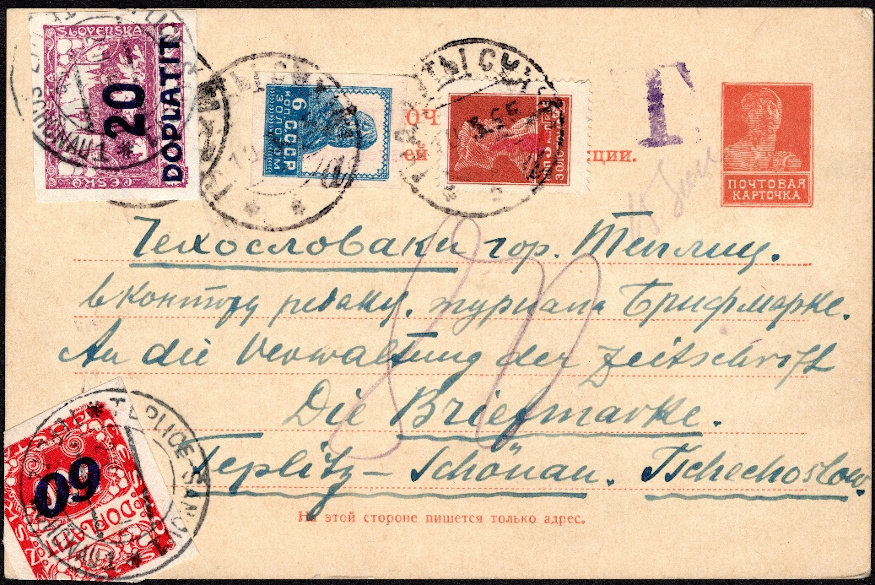 SLOVENSKÁ
20
DOPLATIT
ČESKO
6
КОП.
СССР
ЗОЛОТОМ
T
ПОЧТОВАЯ
КАРТОЧКА
Чехословаки гор. Теплиц.
в контору редакц. журнала Брифмарке.
An die Verwaltung der Zeitschrift
Die Briefmarke.
Teplitz-Schönau. Tschechoslow.
80
TEPLICE-ŠANOV
60
DOPLATIT
На этой стороне пишется только адрес.